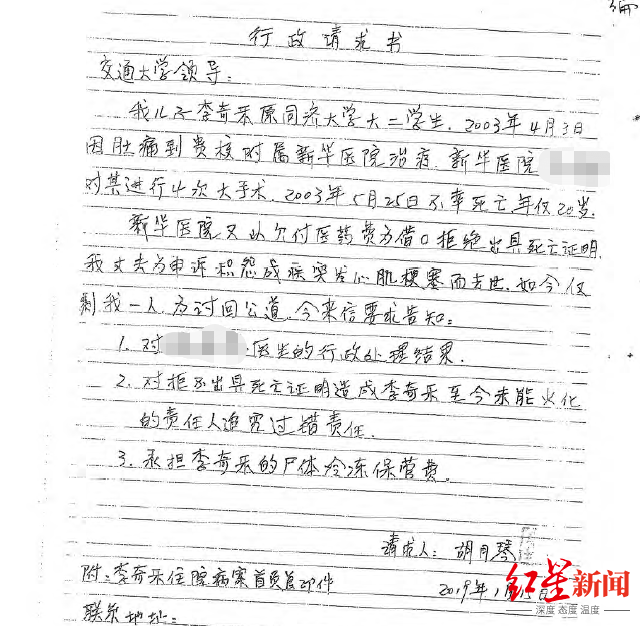 编
行政请求书
交通大学领导：
我儿子李奇乐原同济大学大二学生，2003年4月3日
因肚痛到贵校附属新华医院治疗，新华医院
对其进行4次大手术，2003年5月25日不幸死亡年仅20岁，
新华医院又以欠付医药费为借口拒绝出具死亡证明，
我丈夫为申诉积怨成疾突发心肌梗塞而去世，如今仅
剩我一人，为讨回公道，今来信要求告知：
1. 对 医生的行政处理结果。
2. 对拒不出具死亡证明造成李奇乐至今未能火化
的责任人追究过错责任。
3. 承担李奇乐的尸体冷冻保管费。
请求人：胡月琴
附：李奇乐住院病案首页复印件
2019年1月
联系地址：
红星新闻
深度 态度 温度